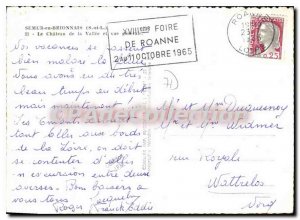 SEMUR-en-BRIONNAIS (S-et-L.)
21 - Le Château de la Vallée et vue
XVIIIème FOIRE
DE ROANNE
2 au 11 OCTOBRE 1965
ROANNE
LOIRE
0,25
Vos vacances se passent
bien malgré le temps
Nous avons eu de très
beau temps au début
mais maintenant
tant allé aux bords
de la Loire, on doit
se contenter d'aller
en excursion entre deux
averses. Bons baisers à
vous tous Jacquet
Franck Eddie
Mr et Mme Duquesnoy
Mr et Mme
rue Royale
Wattrelos
Nord